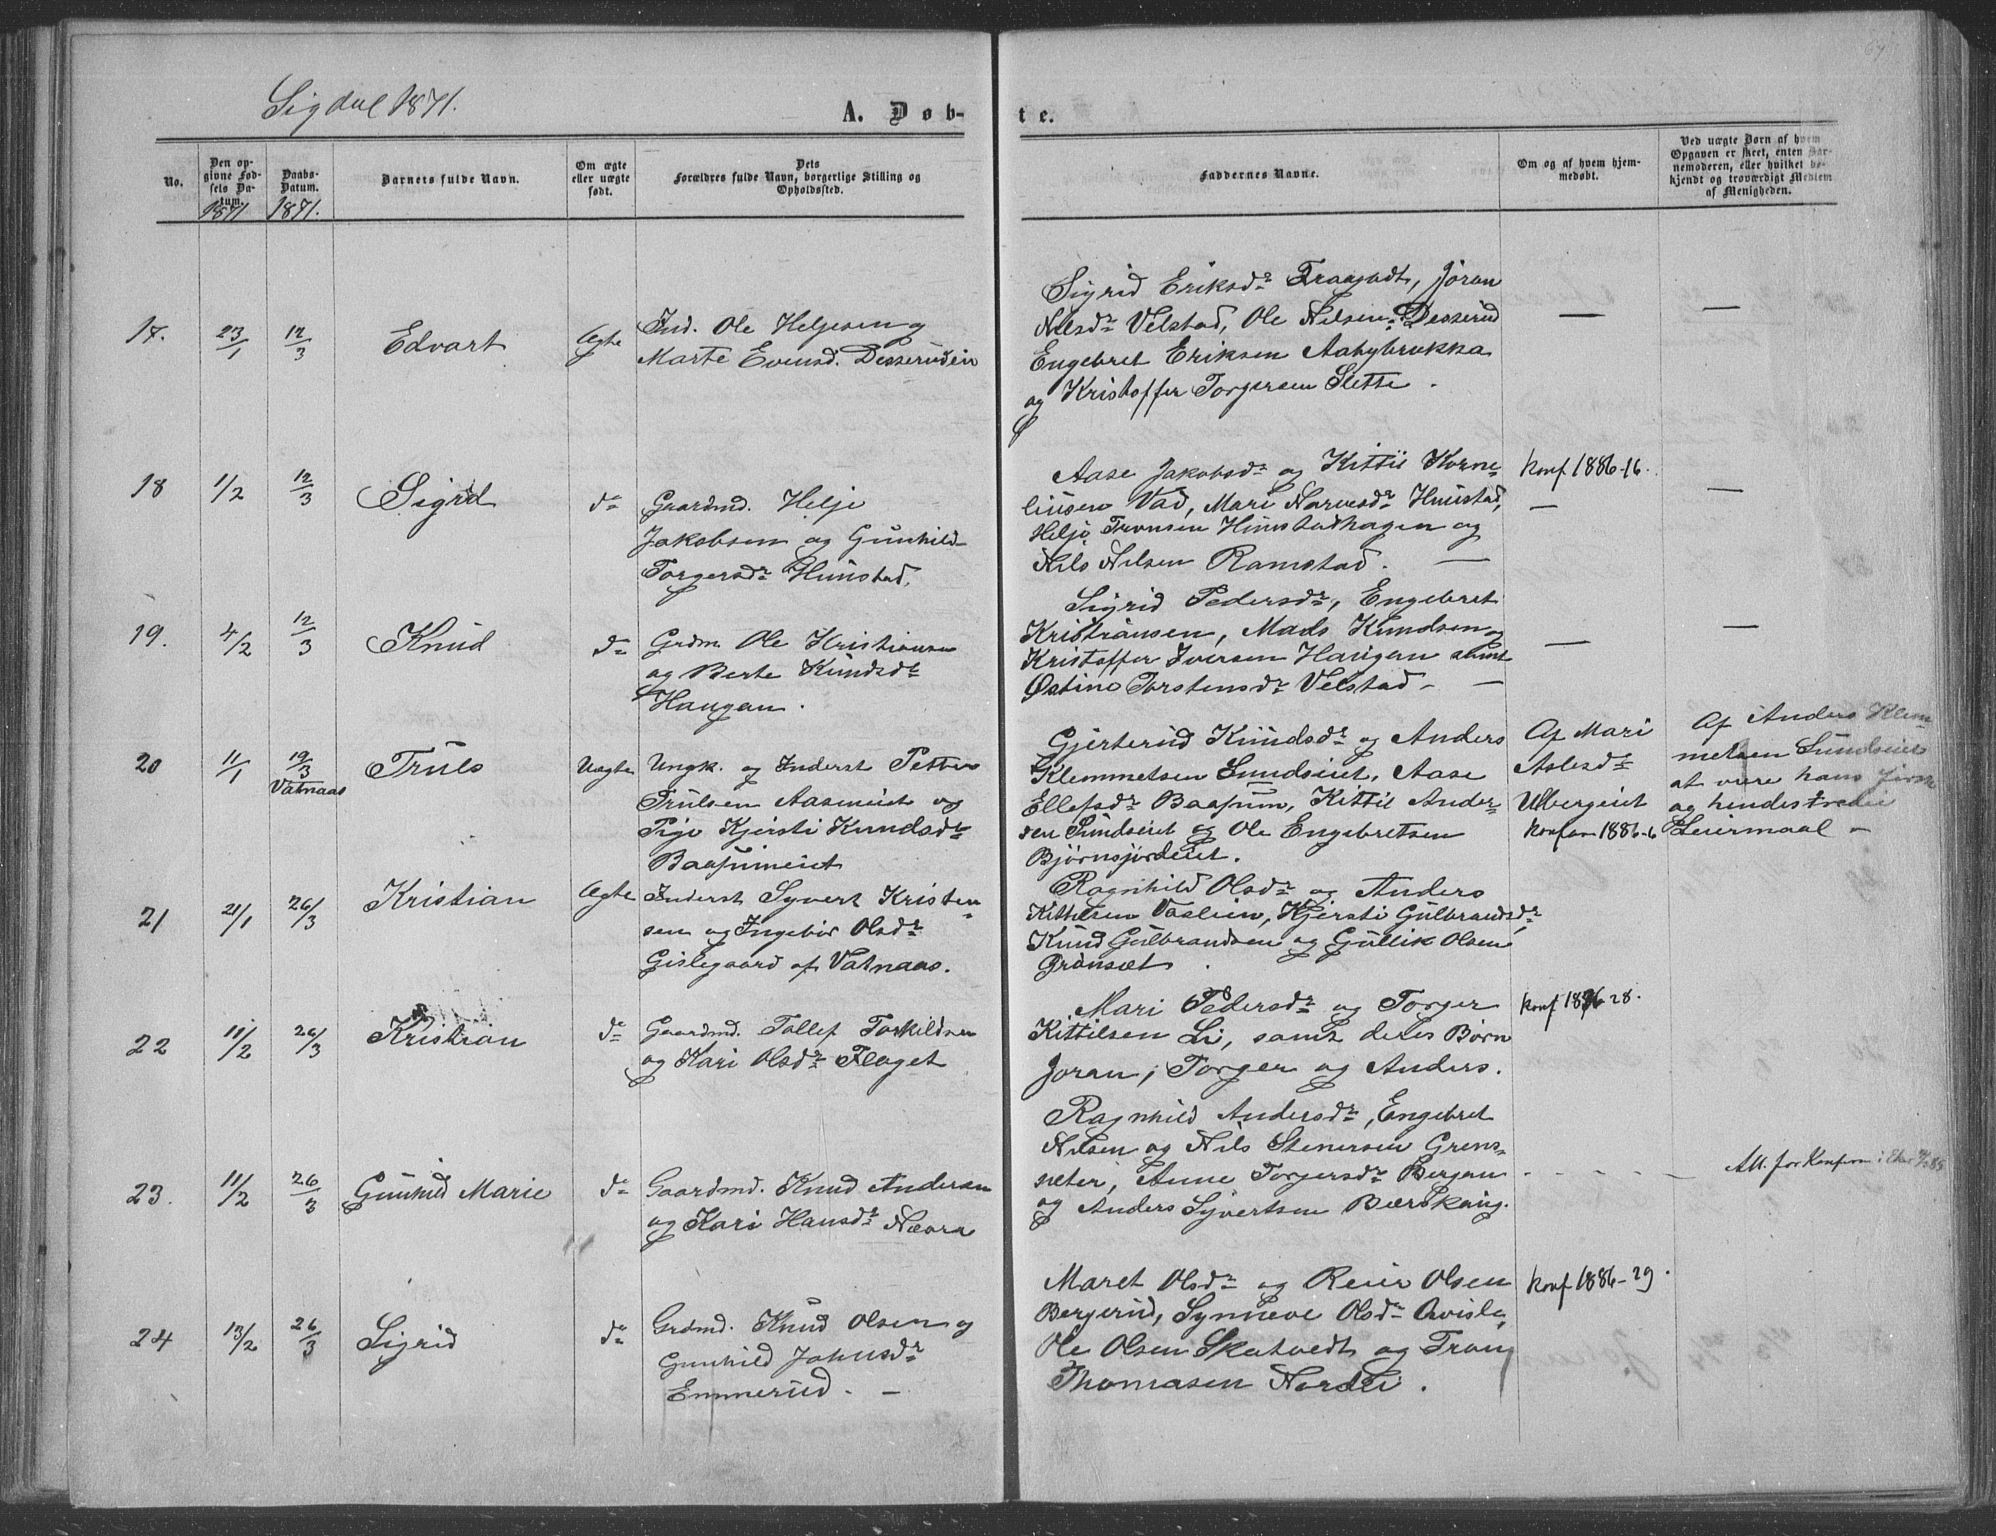 Sigdal 1871.
A. Døb-
te.
No.
Den op-
givne Fød-
sels Da-
tum.
1871
Daabs-
Datum.
1871.
Barnets fulde Navn.
Om ægte
eller uægte
født.
Dets
Forældres fulde Navn, borgerlige Stilling og
Opholdssted.
Faddernes Navne.
Om og af hvem hjem-
medøbt.
Ved uægte Børn af hvem
Opgaven er skeet, enten Bar-
nemoderen, eller hvilket be-
kjendt og troværdigt Medlem
af Menigheden.
17. 23/1 12/3 Edvart Ægte
Ind. Ole Helgesen og
Marte Evensd. Desserudein
Sigrid Eriksdr, Jøran
Nilsdr Velstad, Ole Nilsen Desserud
Engebret Eriksen Aabybrukka
og Kristoffer Torgersen Slette.
—
—
18 1/2 12/3 Sigrid do
Gaardmd. Helje
Jakobsen og Gunhild
Torgersdr Hunstad.
Aase Jakobsdr og Kittil Korne-
liusen Vad, Mari Narvesdr Hunstad,
Helje Tronsen Hunstadhagen og
Nils Nilsen Ramstad. —
konf 1886-16.
—
—
19. 4/2 12/3 Knud do
Grdm. Ole Kristiansen
og Berte Knudsdr
Haugan.
Sigrid Pedersdr, Engebret
Kristiansen, Mads Knudsen og
Kristoffer Iversen Haugan samt
Østine Torstensdr Velstad - —
—
—
20 11/1 19/3 Vatnaas Truls Uægte
Ungk. og Inderst Petter
Trulsen Aaseneiet og
Pige Kjersti Knudsdr
Baasumeiet
Gjerterud Knudsdr og Anders
Klemmetsen Sundseiet, Aase
Ellefsdr Baasum, Kittil Ander-
sen Sundseiet og Ole Engebretsen
Bjørnsjordeiet.
Af Mari
Aslesdr
Ulbergeiet
konfirm 1886-6
Af Anders Klem-
metsen Sundseiet
at være hans første
og hendes tredie
Leiermaal -
21 21/1 26/3 Kristian Ægte
Inderst Syvert Kristen-
sen og Ingebor Olsdr
Gislegaard af Vatnaas.
Ragnhild Olsdr og Anders
Kittilsen Vaslien, Kjersti Gulbrandsdr,
Knud Gulbrandsen og Gullik Olsen
Grønset.
22 11/2 26/3 Kristian do
Gaardmd. Tollef Torkildsen
og Kari Olsdr Flaget
Mari Pedersdr og Torger
Kittilsen Li, samt deres Børn
Joran, Torger og Anders.
konf 1886-28.
23. 11/2 26/3 Gunhild Marie do
Gaardmd. Knud Andersen
og Kari Hansdr Nævra
Ragnhild Andersdr, Engebret
Nilsen og Nils Stenersen Grens-
sæter, Anne Torgersdr Bergan
og Anders Syvertsen Bærskaug.
Att. for Konfirm i Eker
24 13/2 26/3 Sigrid do
Grdmd. Knud Olsen og
Gunhild Johnsdr
Emmerud. —
Maret Olsdr og Reier Olsen
Bergerud, Synneve Olsdr
Ole Olsen Skatvedt og Tron
Thomasen Nordli.
konf 1886-29.